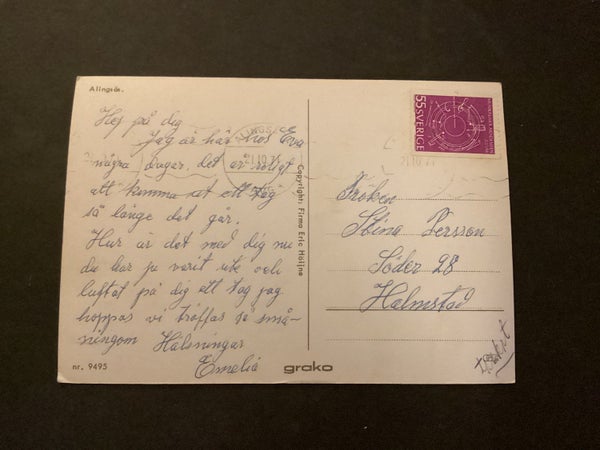 Alingsås.
Hej på dig
Jag är här hos Eva
några dagar. det är roligt
att komma ut ett tag
så länge det går.
Hur är det med dig nu
du har ju varit ute och
luftat på dig ett tag jag
hoppas vi träffas så små-
ningom Hälsningar
Emelia
nr. 9495
Copyright: Firma Eric Höijne
grako
55 SVERIGE
ALINGSÅS
21.10.71
Fröken
Stina Persson
Söder 28
Halmstad